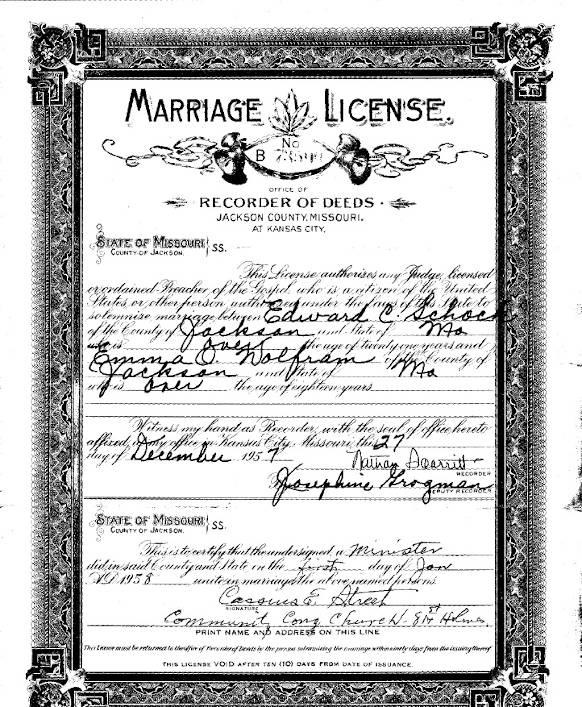 MARRIAGE LICENSE.
No
B
OFFICE OF
RECORDER OF DEEDS
JACKSON COUNTY, MISSOURI.
AT KANSAS CITY,
STATE OF MISSOURI
COUNTY OF JACKSON. SS.
This License authorizes any Judge, licensed
or ordained Preacher of the Gospel, who is a citizen of the United
States, or other person authorized under the laws of this State to
solemnize marriage between Edward C. Schock
of the County of Jackson and State of Mo
who is over the age of twenty one years and
Emma O. Wolfram of the County of
Jackson and State of Mo
who is over the age of eighteen years.
Witness my hand as Recorder, with the seal of office hereto
affixed, at my office in Kansas City, Missouri, the 27
day of December 1957
Nathan Scarritt
RECORDER
Josephine Grogman
DEPUTY RECORDER
STATE OF MISSOURI
COUNTY OF JACKSON. SS.
This is to certify that the undersigned a Minister
did in said County and State on the first day of Jan
A.D. 1958 unite in marriage the above named persons.
Cassius E. Street
SIGNATURE
Community Cong Church - 81st Holmes
PRINT NAME AND ADDRESS ON THIS LINE
This License must be returned to the office of Recorder of Deeds by the person solemnizing the marriage within ninety days from the issuing thereof
THIS LICENSE VOID AFTER TEN (10) DAYS FROM DATE OF ISSUANCE.